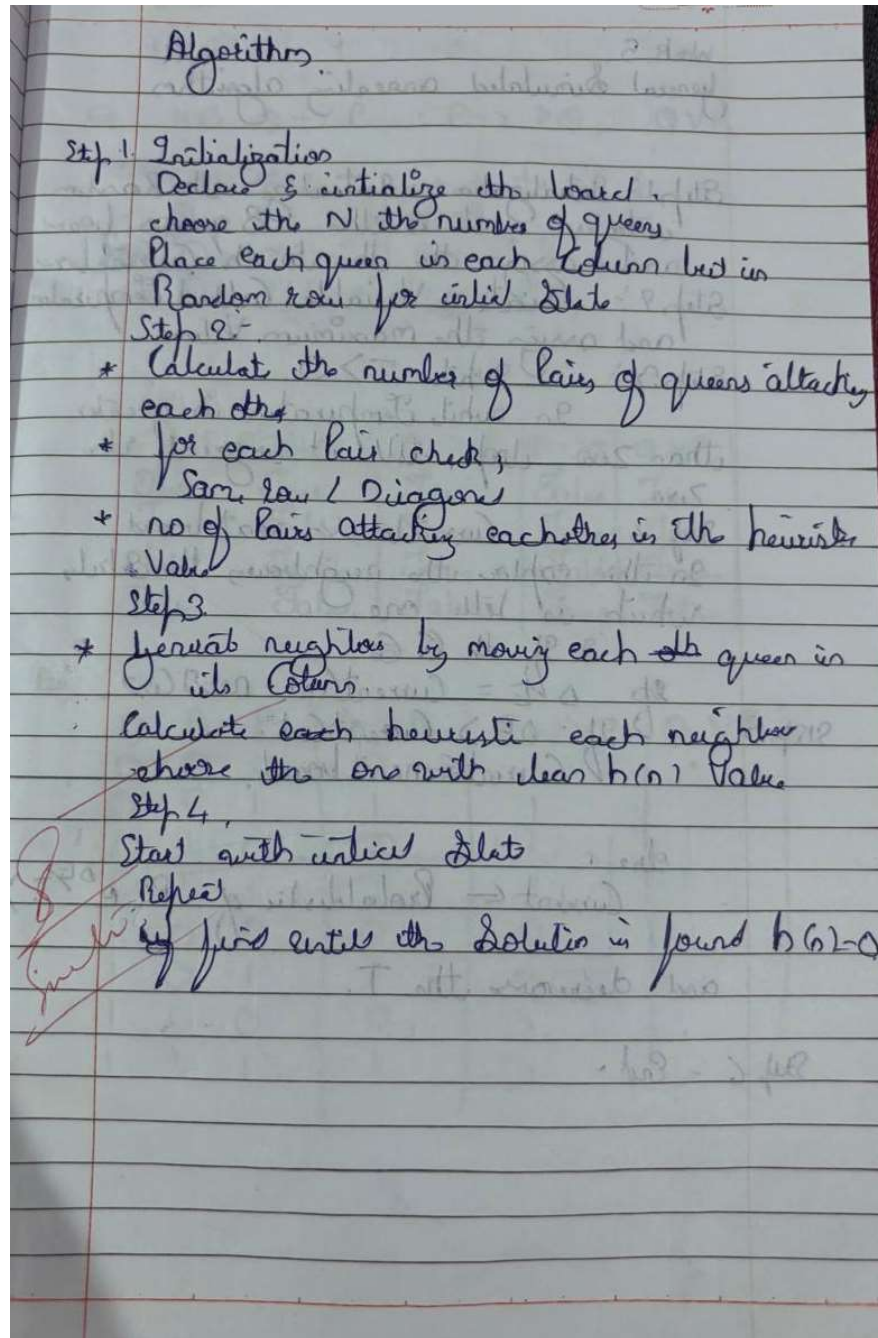 Algorithm
Step 1. Initialization
Declare & intialize the board.
choose the N the number of queens
Place each queen in each Column but in
Random row for intial State
Step 2:-
* Calculate the number of Pairs of queens attacking
each other
* for each Pair check,
Same row / Diagonal
* no of Pairs attacking eachother is the heuristic
Value
Step 3
* Generate neighbour by moving each queen in
its Column.
Calculate each heuristic each neighbour
choose the one with h(n) Value
Step 4,
Start with intial State
Repeat
find until the Solution is found h(n)=0
8